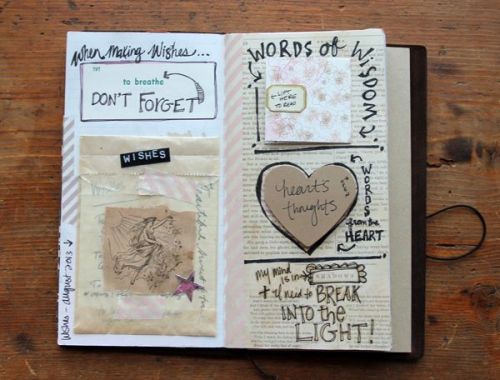 When Making Wishes...
to breathe
DON'T FORGET
WISHES
Wishes - August 2013
WORDS of WISDOM
LIFT
HERE
TO READ
heart's
thoughts
WORDS
from the
HEART
My mind
is in
SHADOWS
+ I need to BREAK
INTO the
LIGHT!